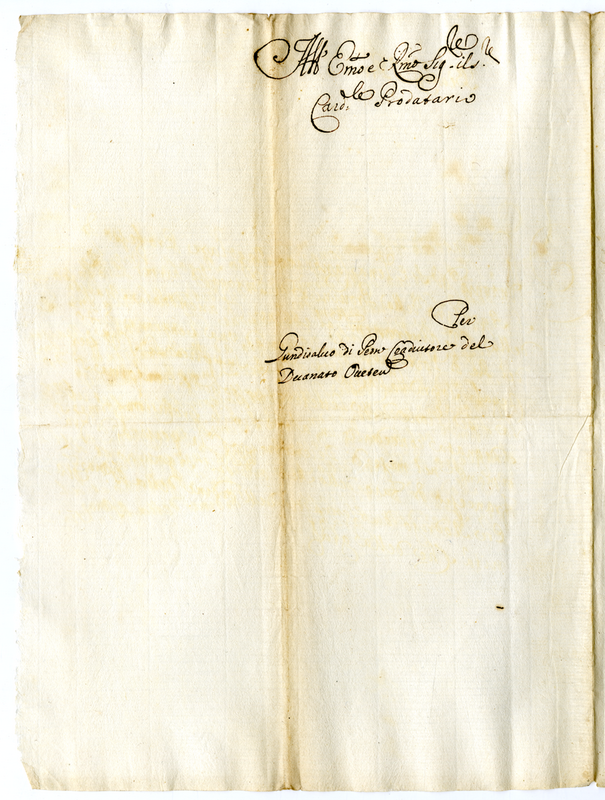 All' Em.o e R.mo Sig.re il S.re
Card.le Prodatario
Per
Gundisalvo di Pem Coadiutore del
Decanato Oveten